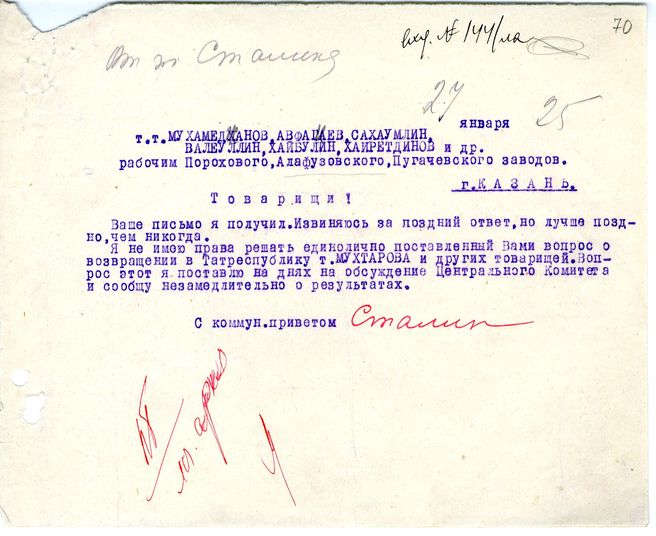 70
вхд. № 144/ла
От т. Сталина
27 января 25
т.т.МУХАМЕДХАНОВ,АВФАЦАЕВ,САХАУМЛИН,
ВАЛЕУЛЛИН,ХАЙБУЛИН,ХАИРЕТДИНОВ и др.
рабочим Порохового,Алафузовского,Пугачевского заводов.
г.КАЗАНЬ.
Товарищи!
Ваше письмо я получил.Извиняюсь за поздний ответ,но лучше позд-
но,чем никогда.
Я не имею права решать единолично поставленный Вами вопрос о
возвращении в Татреспублику т.МУХТАРОВА и других товарищей.Воп-
рос этот я поставлю на днях на обсуждение Центрального Комитета
и сообщу незамедлительно о результатах.
С коммун.приветом Сталин